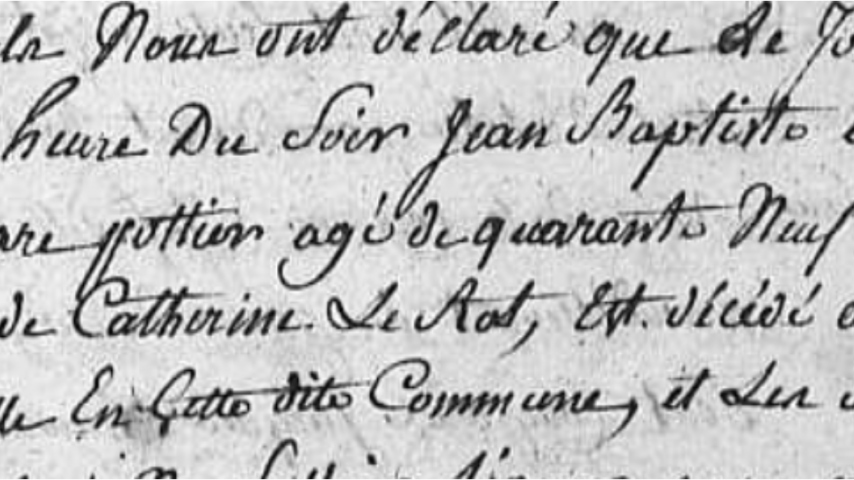 Nous ont déclaré que Le
heure Du Soir Jean Baptiste
pottier agé de quarante Neuf
de Catherine Le Rat, Est décédé
En Cette dite Commune, et Les